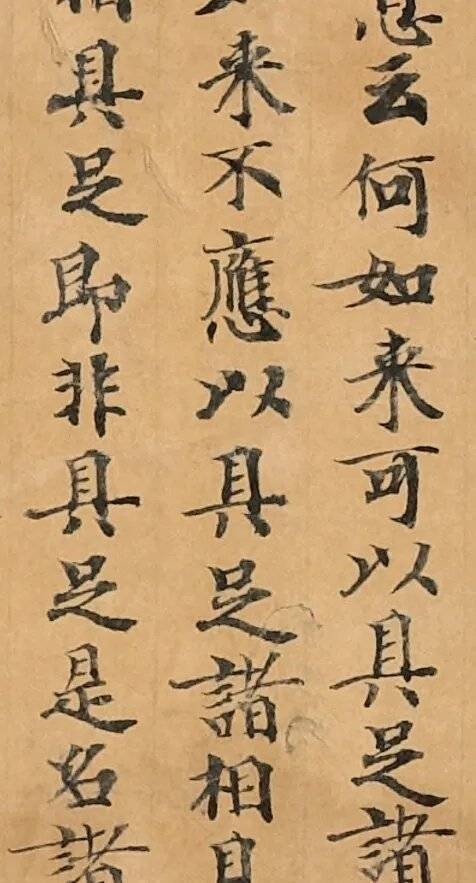 意云何如来可以具足諸
来不應以具足諸相見
相具足即非具足是名諸